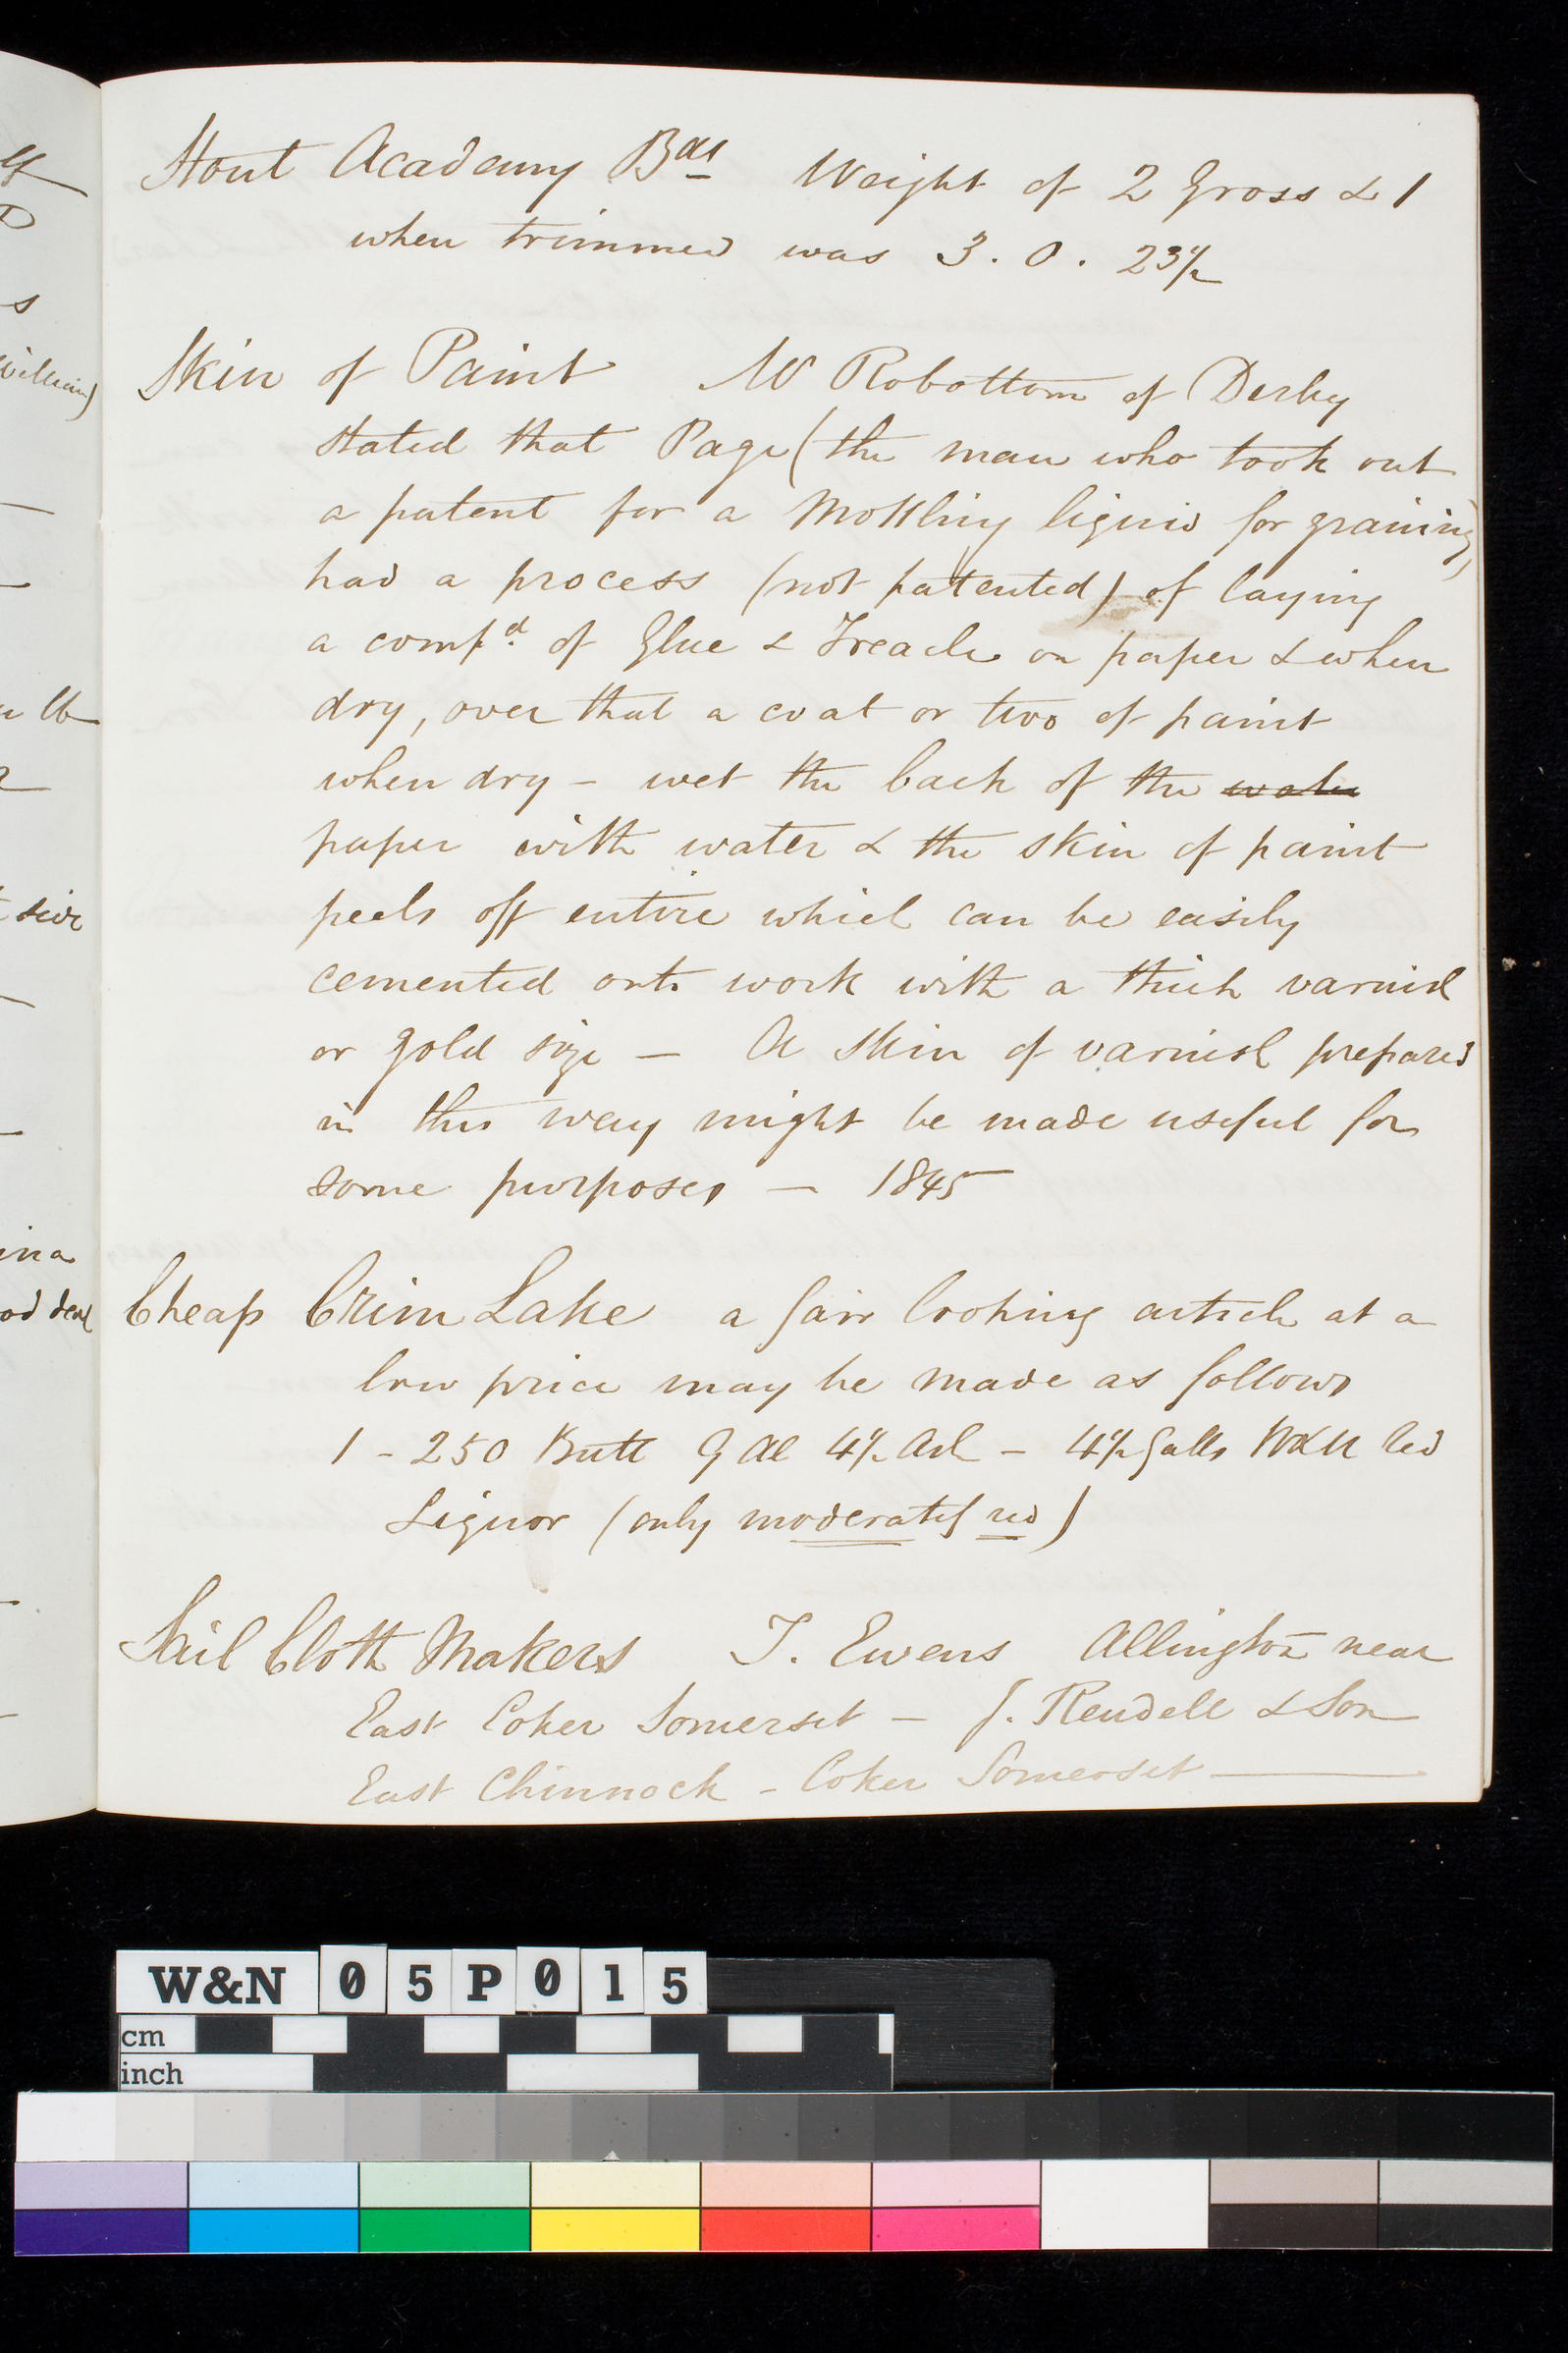 Stout Academy Bds Weight of 2 Gross & 1
when trimmed was 3. 0. 23½
Skin of Paint Mr Robottom of Derby
stated that Page (the man who took out
a patent for a Mottling liquid for graining)
had a process (not patented) of laying
a compd. of Glue & Treacle on paper & when
dry, over that a coat or two of paint
when dry – wet the back of the water
paper with water & the skin of paint
peels off entire which can be easily
cemented onto work with a thick varnish
or gold size — A skin of varnish prepared
in this way might be made useful for
some purposes — 1845
Cheap Crim Lake a fair looking article at a
low price may be made as follows
1 - 250 Butt 9 Al 4½ Ash – 4½ galls Red
Liquor (only moderately red)
Sail Cloth Makers T. Ewens Allington near
East Coker Somerset — J. Rendell & Son
East Chinnock – Coker Somerset ———
W&N 05P015
cm
inch